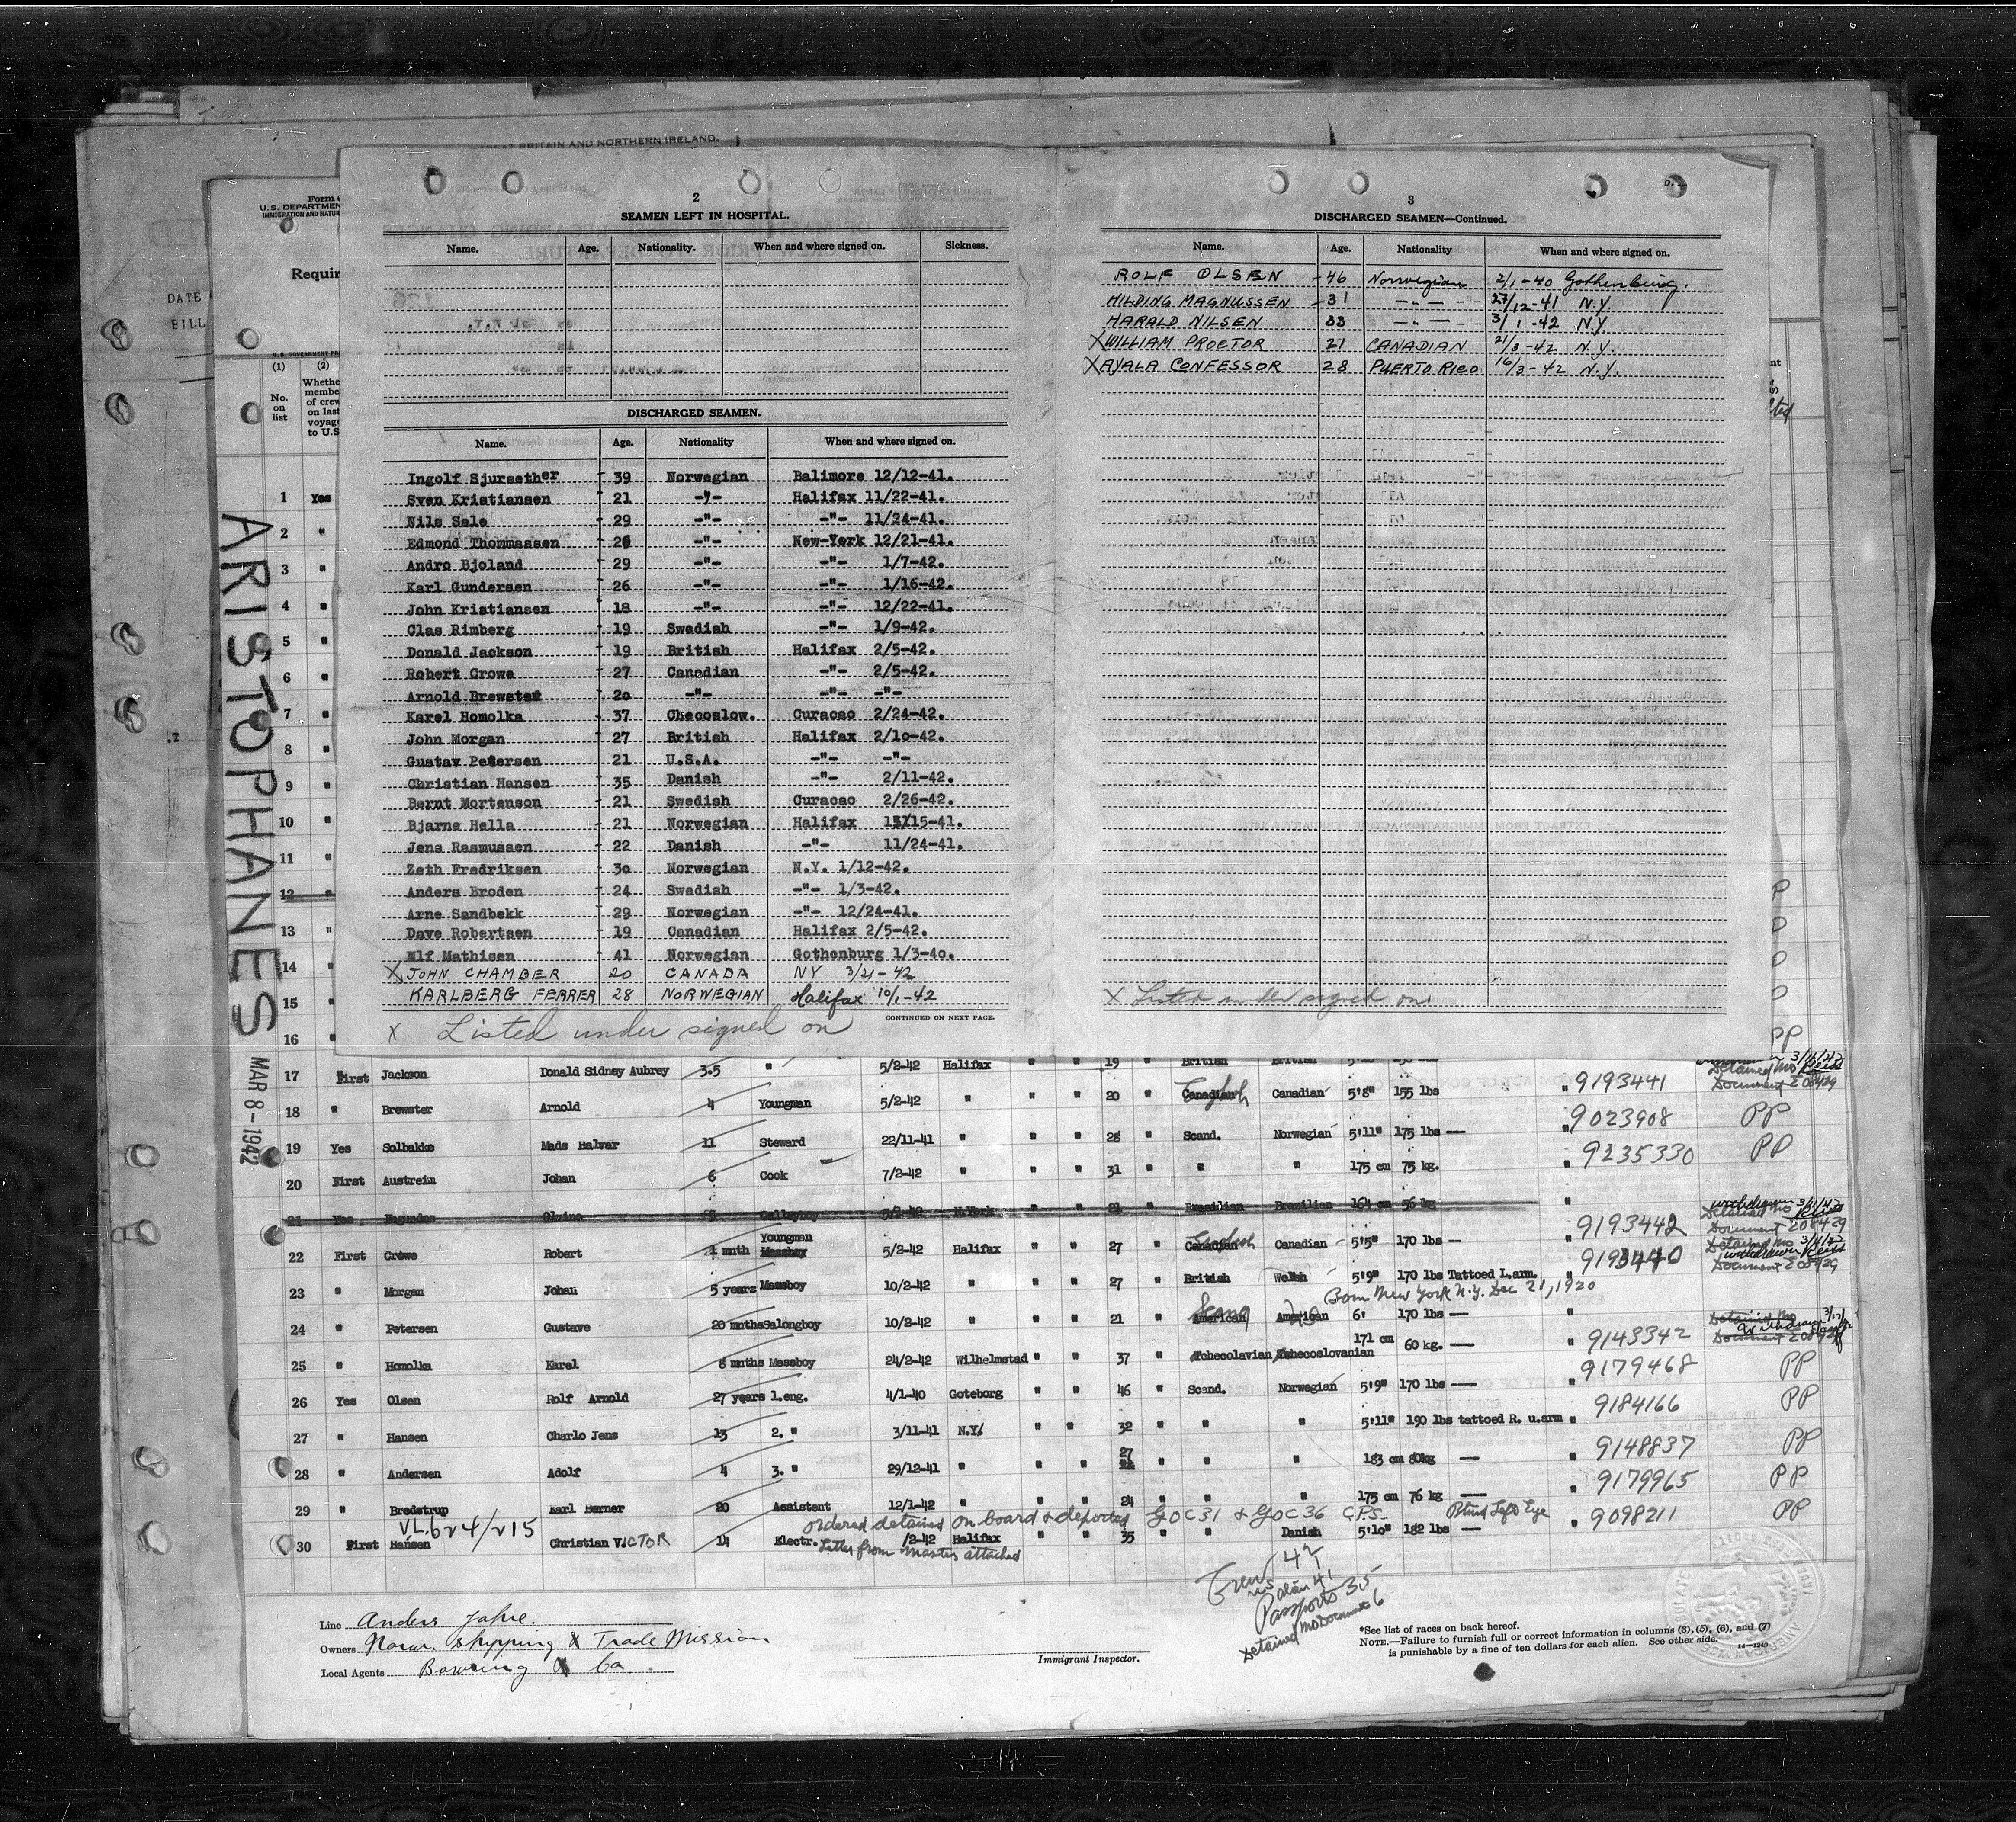 GREAT BRITAIN AND NORTHERN IRELAND.
Form
U.S. DEPARTMEN
IMMIGRATION AND NATUR
Requir
DATE
BILL
(1) (2)
No. on list
Whethe membe of crew on last voyage to U.S.
ARISTOPHANES
MAR 8-1942
1 Yes
2 "
3 "
4 "
5 "
6 "
7 "
8 "
9 "
10 "
11 "
12 "
13 "
14 "
15 "
16 "
2
SEAMEN LEFT IN HOSPITAL.
Name. Age. Nationality. When and where signed on. Sickness.
DISCHARGED SEAMEN.
Name. Age. Nationality When and where signed on.
Ingolf Sjursether 39 Norwegian Balimore 12/12-41.
Sven Kristiansen 21 -"- Halifax 11/22-41.
Nils Sele 29 -"- -"- 11/24-41.
Edmond Thommassen 26 -"- New-York 12/21-41.
Andro Bjoland 29 -"- -"- 1/7-42.
Karl Gundersen 26 -"- -"- 1/16-42.
John Kristiansen 18 -"- -"- 12/22-41.
Clas Rimberg 19 Swedish -"- 1/9-42.
Donald Jackson 19 British Halifax 2/5-42.
Robert Crowe 27 Canadian -"- 2/5-42.
Arnold Brewster 2o -"- -"- -"-
Karel Homolka 37 Checoslow. Curacao 2/24-42.
John Morgan 27 British Halifax 2/1o-42.
Gustav Petersen 21 U.S.A. -"- -"-
Christian Hansen 35 Danish -"- 2/11-42.
Bernt Mortenson 21 Swedish Curacao 2/26-42.
Bjarne Hella 21 Norwegian Halifax /15-41.
Jens Rasmussen 22 Danish -"- 11/24-41.
Zeth Fredriksen 3o Norwegian N.Y. 1/12-42.
Anders Broden 24 Swedish -"- 1/3-42.
Arne Sandbekk 29 Norwegian -"- 12/24-41.
Dave Robertsen 19 Canadian Halifax 2/5-42.
Mathisen 41 Norwegian Gothenburg 1/3-4o.
X JOHN CHAMBER 20 CANADA NY 3/21-42
KARLBERG FERRER 28 NORWEGIAN Halifax 10/1-42
CONTINUED ON NEXT PAGE.
X Listed under signed on
3
DISCHARGED SEAMEN—Continued.
Name. Age. Nationality When and where signed on.
ROLF OLSEN -46 Norwegian 2/1-40 Gothenburg.
HILDING MAGNUSSEN -31 -"- 23/12-41 N.Y.
HARALD NILSEN 33 -"- 3/1-42 N.Y
X WILLIAM PROCTOR 21 CANADIAN 21/3-42 N.Y.
X AYALA CONFESSOR 28 PUERTO RICO 16/3-42 N.Y.
X Listed under signed on
PP
17 First Jackson Donald Sidney Aubrey 3.5 " 5/2-42 Halifax " " 19 " British British
9193441 Detained No Document
18 " Brewster Arnold 4 Youngman 5/2-42 " " " 20 " Canadian Canadian 5'8" 155 lbs
" 9023908 PP
19 Yes Solbakke Mads Halvar 11 Steward 22/11-41 " " " 28 " Scand. Norwegian 5'11" 175 lbs —
" 9235330 PP
20 First Austreim Johan 6 Cook 7/2-42 " " " 31 " " " 175 cm 75 kg.
21 Yes Fagundes 5/1-42 N.York " " 21 " Brazilian Brazilian 164 cm 56 kg "
9193442 Detained No Document
22 First Crowe Robert 1 mnth Youngman Messboy 5/2-42 Halifax " " 27 " Canadian Canadian 5'5" 170 lbs —
9193440 Detained No Document
23 " Morgan Johan 5 years Messboy 10/2-42 " " " 27 " British Welsh 5'9" 170 lbs Tattoed L.arm. "
Born New York N.Y. Dec 21, 1920
24 " Petersen Gustave 20 mnths Salongboy 10/2-42 " " " 21 " American American 6' 170 lbs — "
9143342 Detained No Document
25 " Homolka Karel 8 mnths Messboy 24/2-42 Wilhelmstad " " 37 " Tchecolavian Tshecoslovanian 171 cm 60 kg. —
" 9179468 PP
26 Yes Olsen Rolf Arnold 27 years 1.eng. 4/1-40 Goteborg " " 46 " Scand. Norwegian 5'9" 170 lbs —
9184166 PP
27 " Hansen Charlo Jens 13 2. " 3/11-41 N.Y. " " 32 " " " 5'11" 190 lbs tattoed R. u.arm "
9148837 PP
28 " Andersen Adolf 4 3. " 29/12-41 " " " 27 " " " 183 cm 80kg —
" 9179965 PP
29 " Bredstrup Karl Berner 20 Assistent 12/1-42 " " " 24 " " " 175 cm 76 kg —
" 9098211 PP
VL.624/215 ordered detained on board & deported GOC31 & GOC36 C.P.S. Blind Left Eye
30 First Hansen Christian VICTOR 14 Electr. /2-42 Halifax " " 35 " " Danish 5'10" 182 lbs —
Letter from Master attached
Crew 42
US 1
alien 41
Passports 35
Detained no Document 6
Line Anders Jahre.
Owners Norw. Shipping & Trade Mission
Local Agents Bowring & Co.
Immigrant Inspector.
*See list of races on back hereof.
NOTE.—Failure to furnish full or correct information in columns (3), (5), (6), and (7) is punishable by a fine of ten dollars for each alien. See other side.